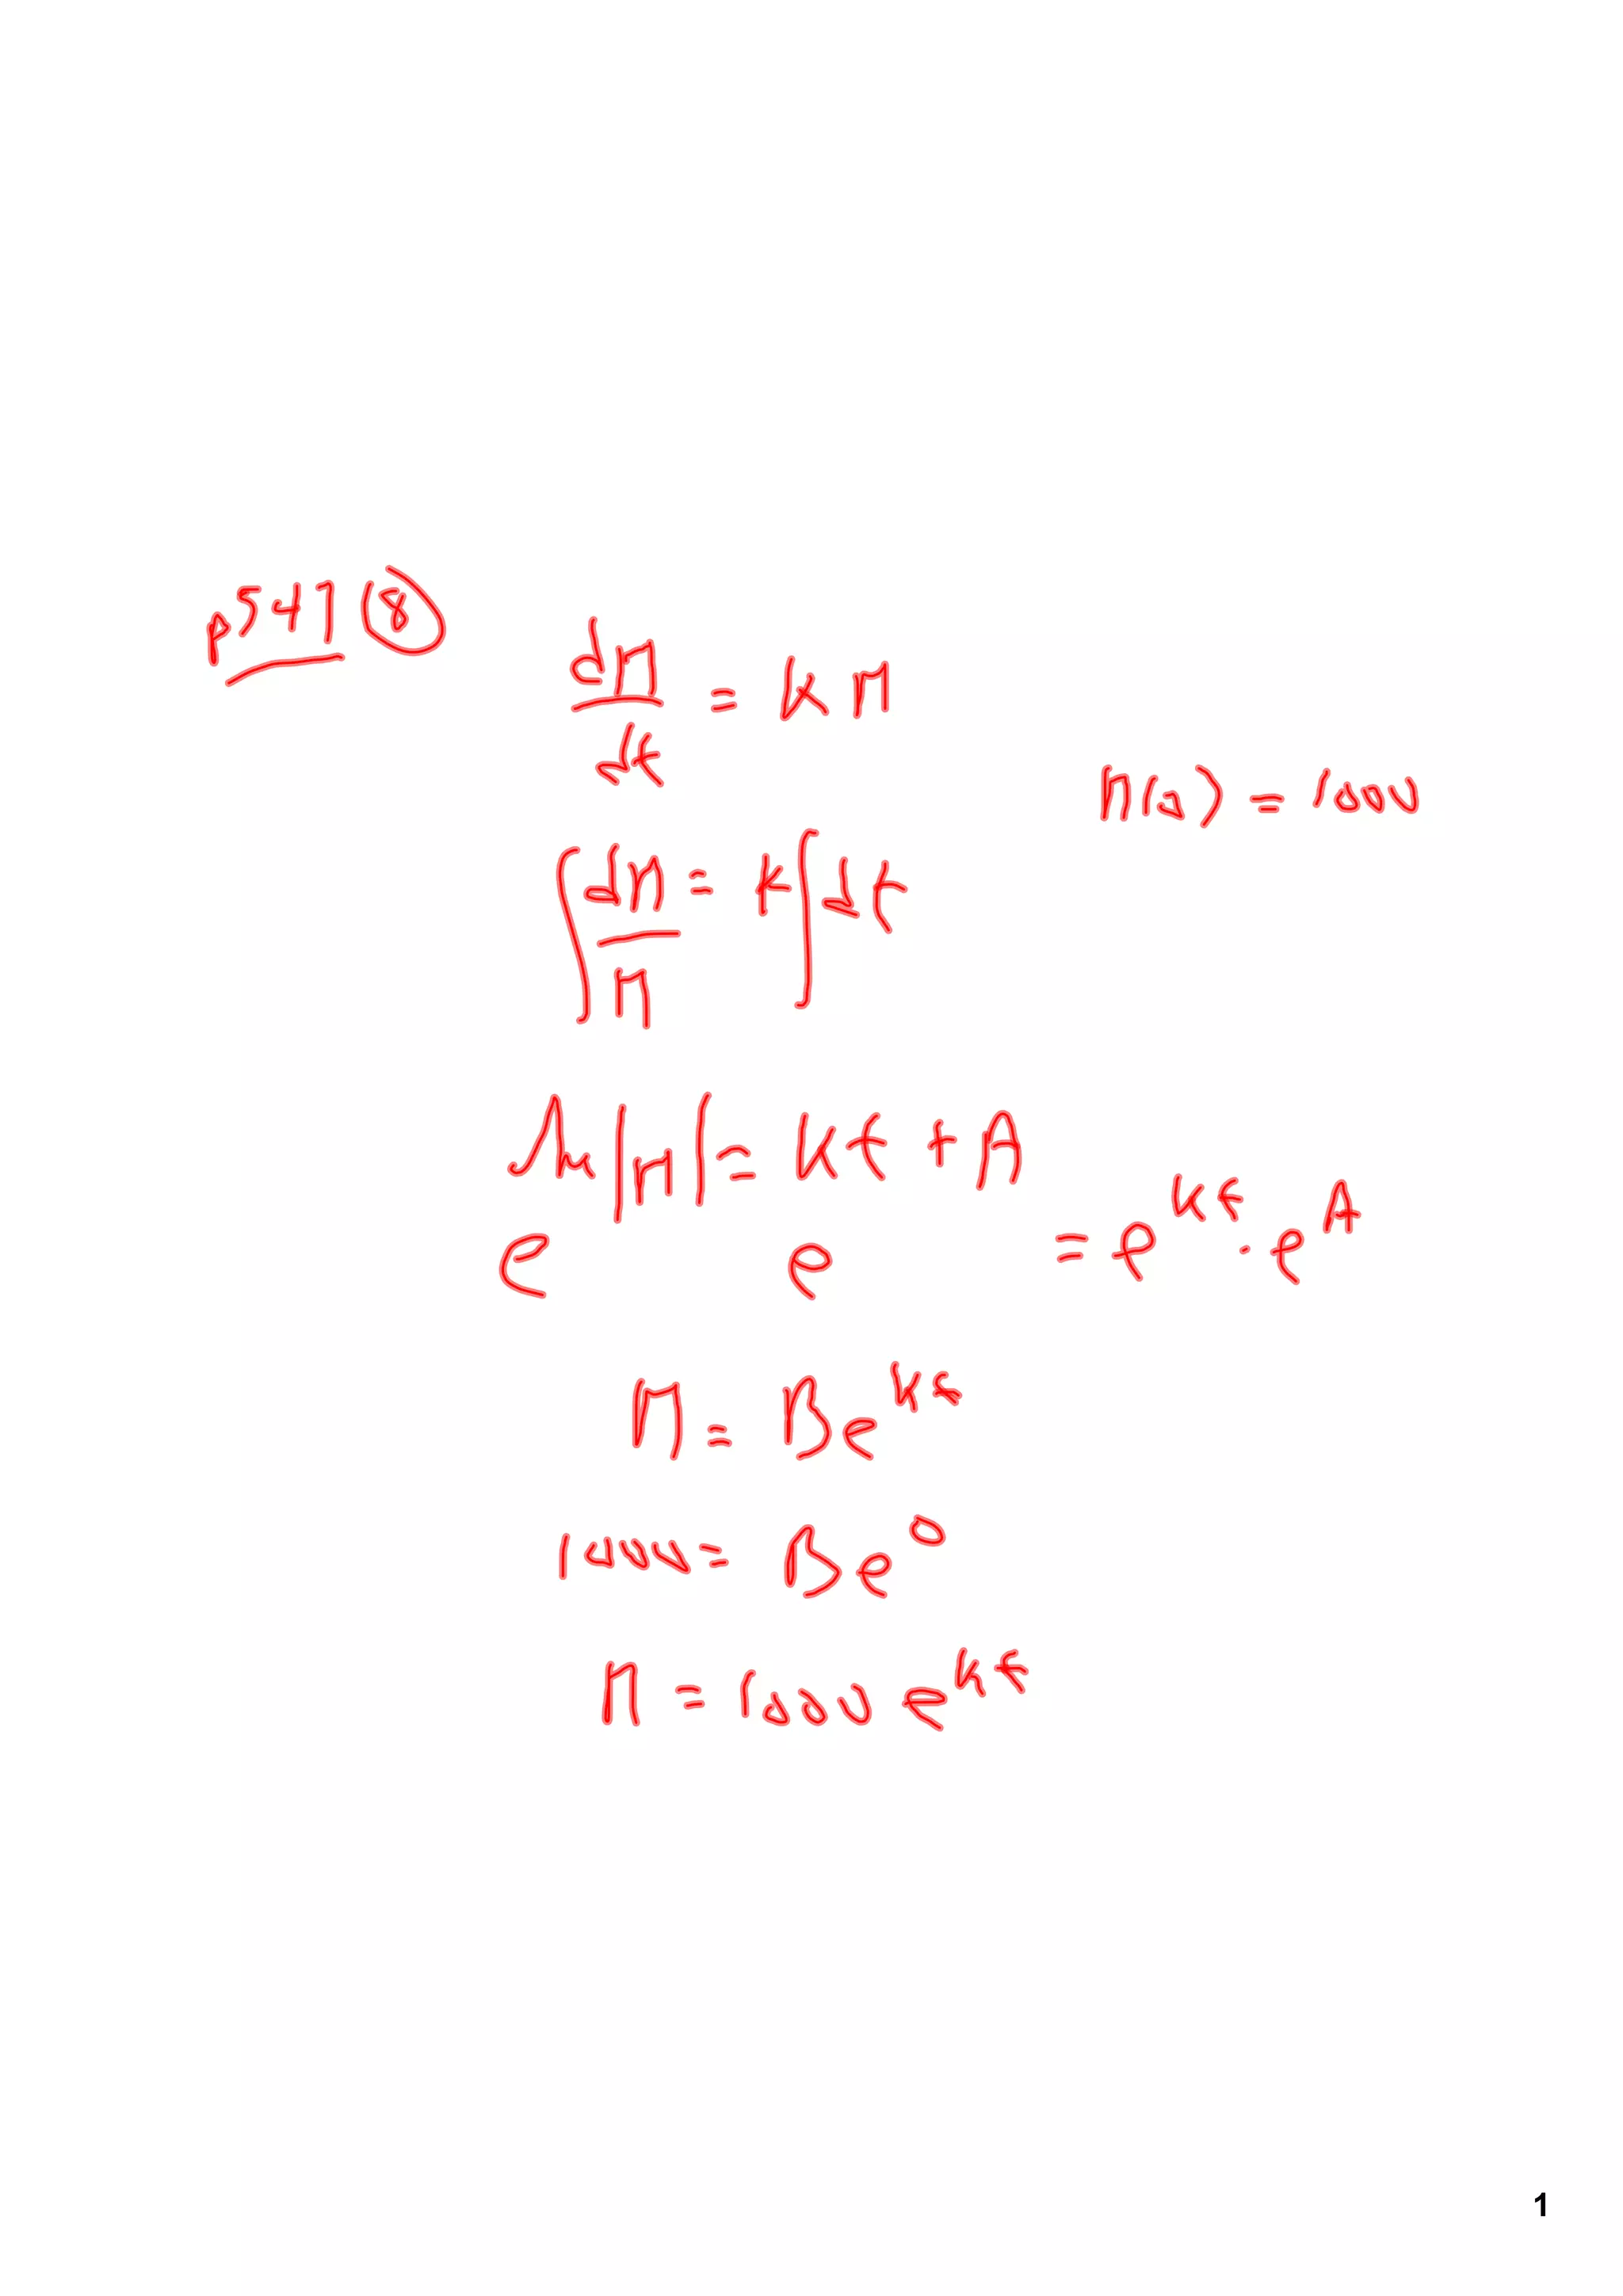 p541 (8)
dn/dt = kn
n(0) = 1000
∫ dn/n = k ∫ dt
ln|n| = kt + A
e e = e^kt · e^A
n = Be^kt
1000 = Be^0
n = 1000 e^kt
1